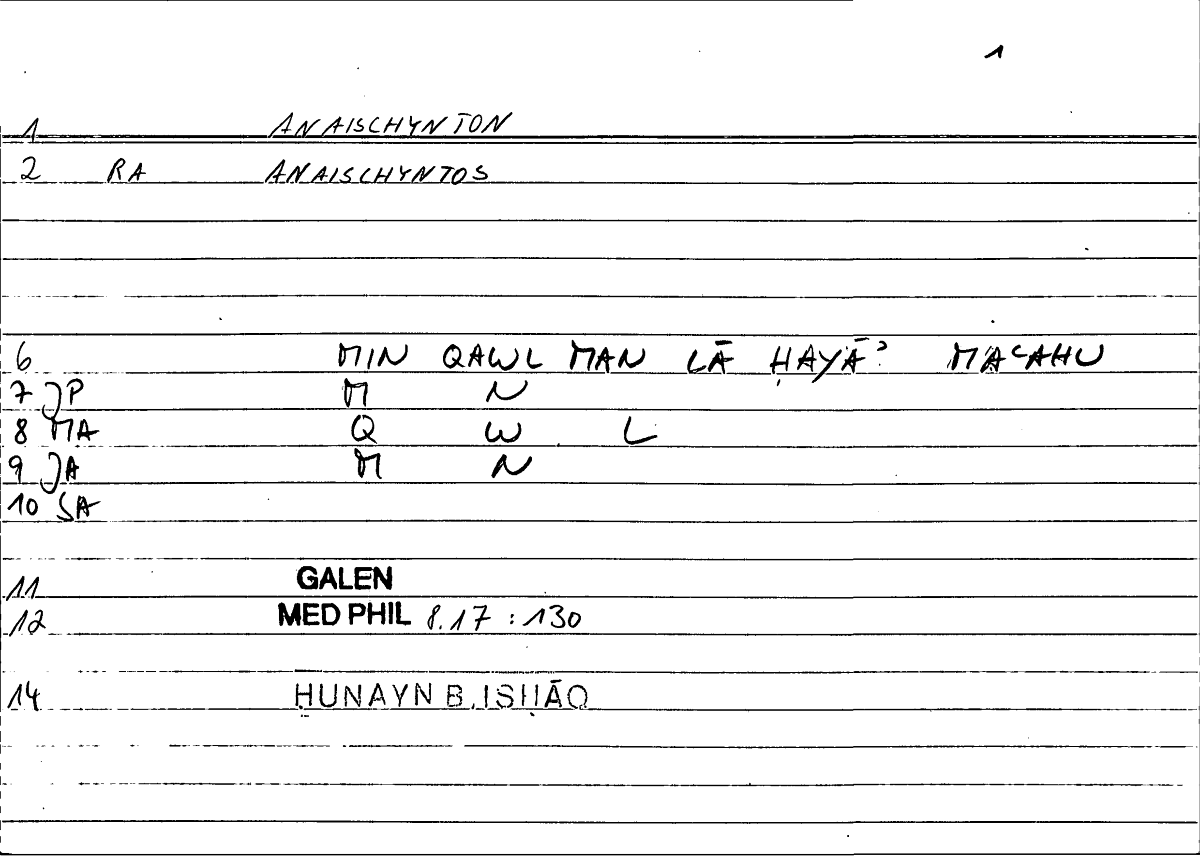 1
1 ANAISCHYNTON
2 RA ANAISCHYNTOS
6 MIN QAWL MAN LĀ ḤAYĀʾ MAʿAHU
7 JP M N
8 MA Q W L
9 JA M N
10 SA
11 GALEN
12 MED PHIL 8.17 : 130
14 ḤUNAYN B. ISḤĀQ